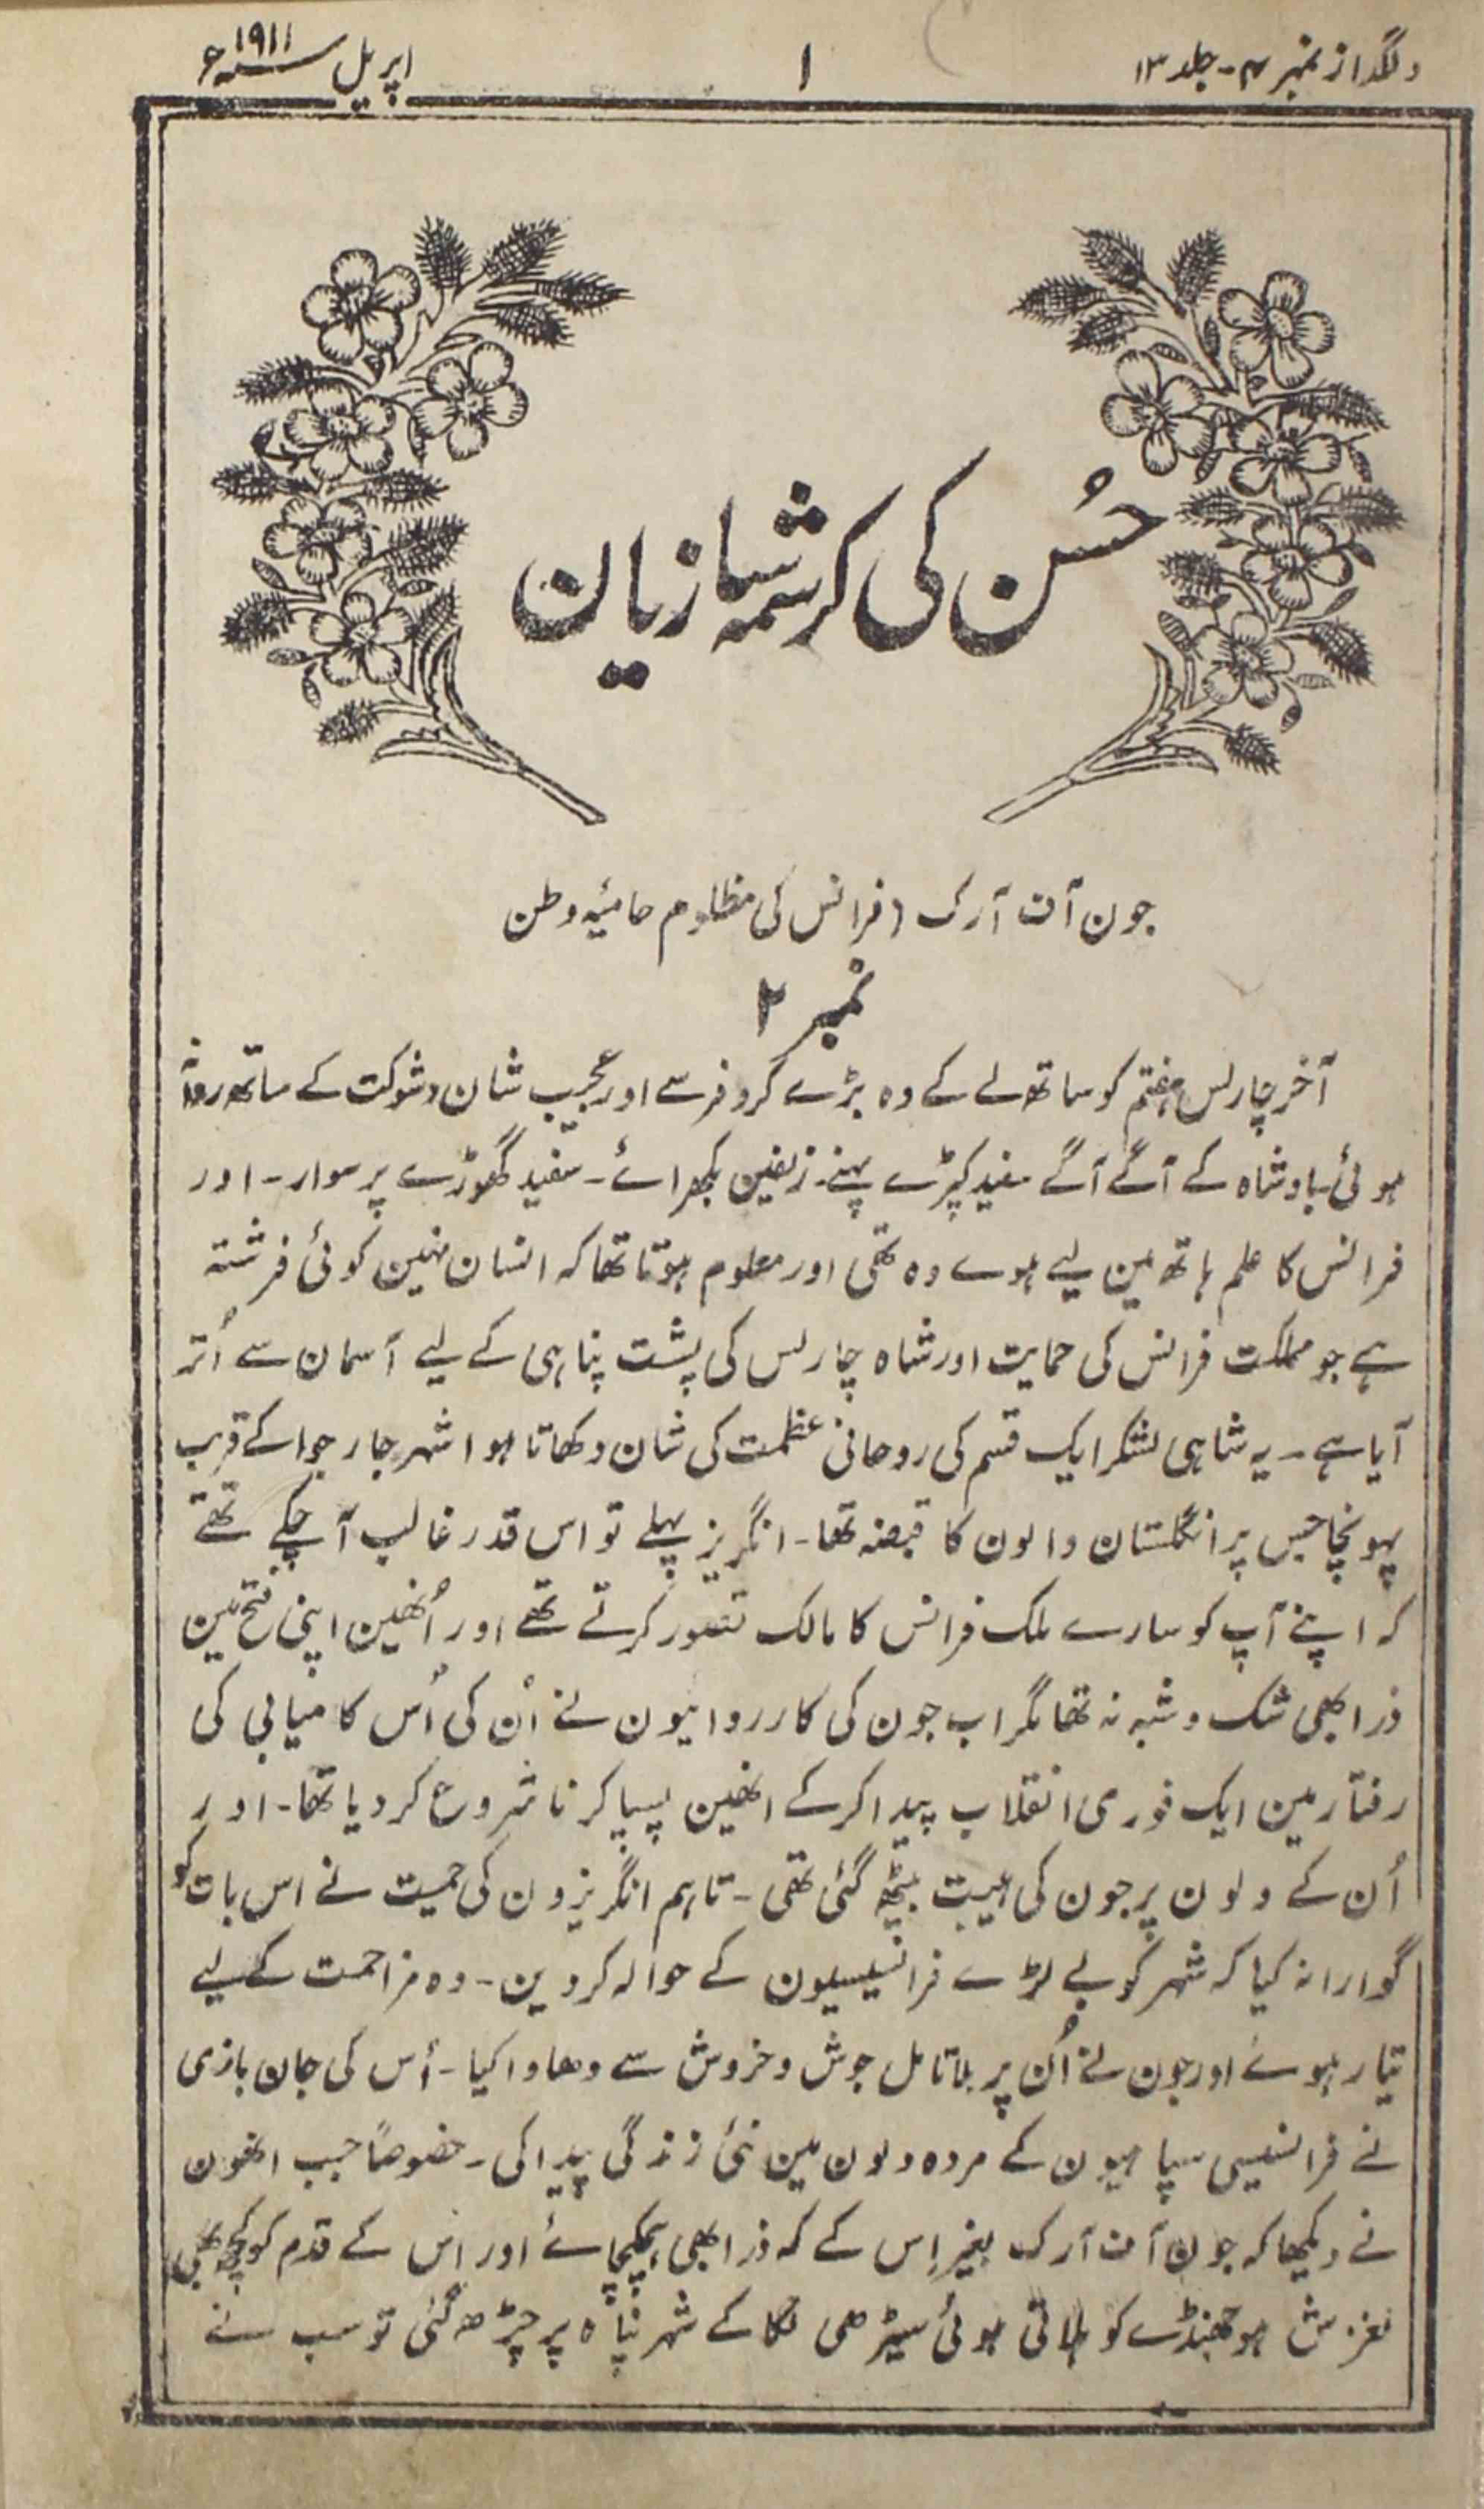 دلگداز نمبر ۴ - جلد ۱۳
۱
اپریل سنہ ۱۹۱۱ء
حُسن کی کرشمہ سازیان
جون آف آرک (فرانس کی مظلوم حامیۂ وطن
نمبر ۲
آخر چارلس ہفتم کو ساتھ لے کے وہ بڑے کروفر سے اور عجیب شان و شوکت کے ساتھ روانہ
ہوئی بادشاہ کے آگے آگے سفید کپڑے پہنے۔ زلفین بکھرائے۔ سفید گھوڑے پر سوار۔ اور
فرانس کا علم ہاتھ مین لیے ہوے وہ تھی اور معلوم ہوتا تھا کہ انسان نہین کوئی فرشتہ
ہے جو مملکت فرانس کی حمایت اور شاہ چارلس کی پشت پناہی کے لیے آسمان سے اُتر
آیا ہے۔ یہ شاہی لشکر ایک قسم کی روحانی عظمت کی شان دکھاتا ہوا شہر جارجوا کے قریب
پہونچا جس پر انگلستان والون کا قبضہ تھا۔ انگریز پہلے تو اس قدر غالب آ چکے تھے
کہ اپنے آپ کو سارے ملک فرانس کا مالک تصور کرتے تھے اور اُنھین اپنی فتح مین
ذرا بھی شک و شبہ نہ تھا مگر اب جون کی کارروایون نے اُن کی اُس کامیابی کی
رفتار مین ایک فوری انقلاب پیدا کرکے انھین پسپا کرنا شروع کر دیا تھا۔ اور
اُن کے دلون پر جون کی ہیبت بیٹھ گئی تھی۔ تاہم انگریزون کی حمیت نے اس بات کو
گوارا نہ کیا کہ شہر کو بے لڑے فرانسیسیون کے حوالہ کردین۔ وہ مزاحمت کے لیے
تیار ہوے اور جون نے اُن پر بلا تامل جوش و خروش سے دھاوا کیا۔ اُس کی جان بازی
نے فرانسیسی سپاہیون کے مردہ دلون مین نئی زندگی پیدا کی۔ خصوصاً جب انھون
نے دیکھا کہ جون آف آرک بغیر اِس کے کہ ذرا بھی ہچکچائے اور اس کے قدم کو کچھ بھی
لغزش ہو جھنڈے کو ہلاتی ہوئی سیڑھی لگا کے شہر پناہ پر چڑھ گئی تو سب نے